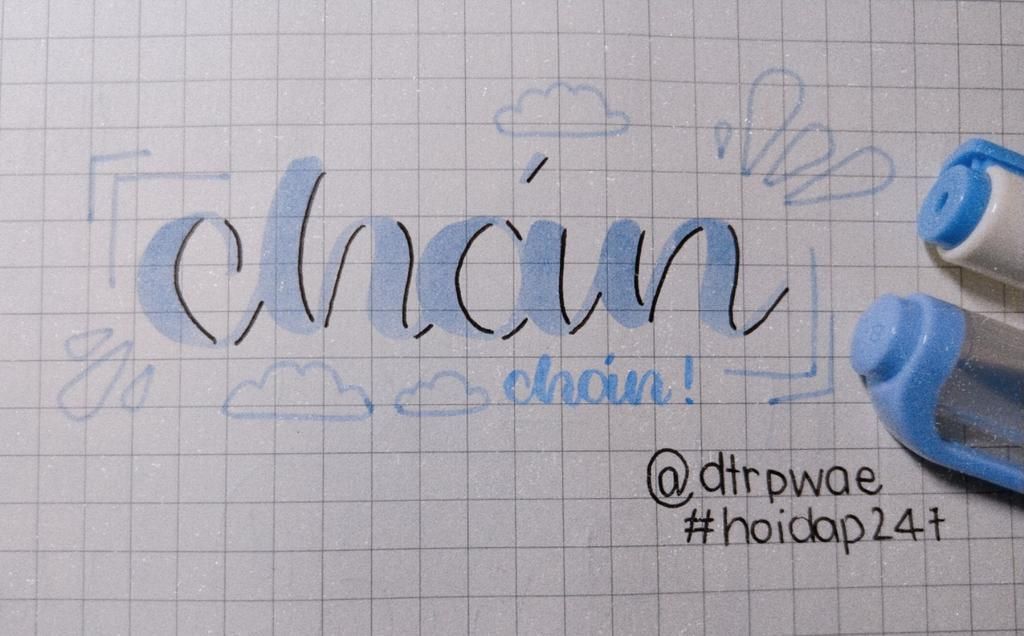 chán
chán!
@dtrpwae
#hoidap247